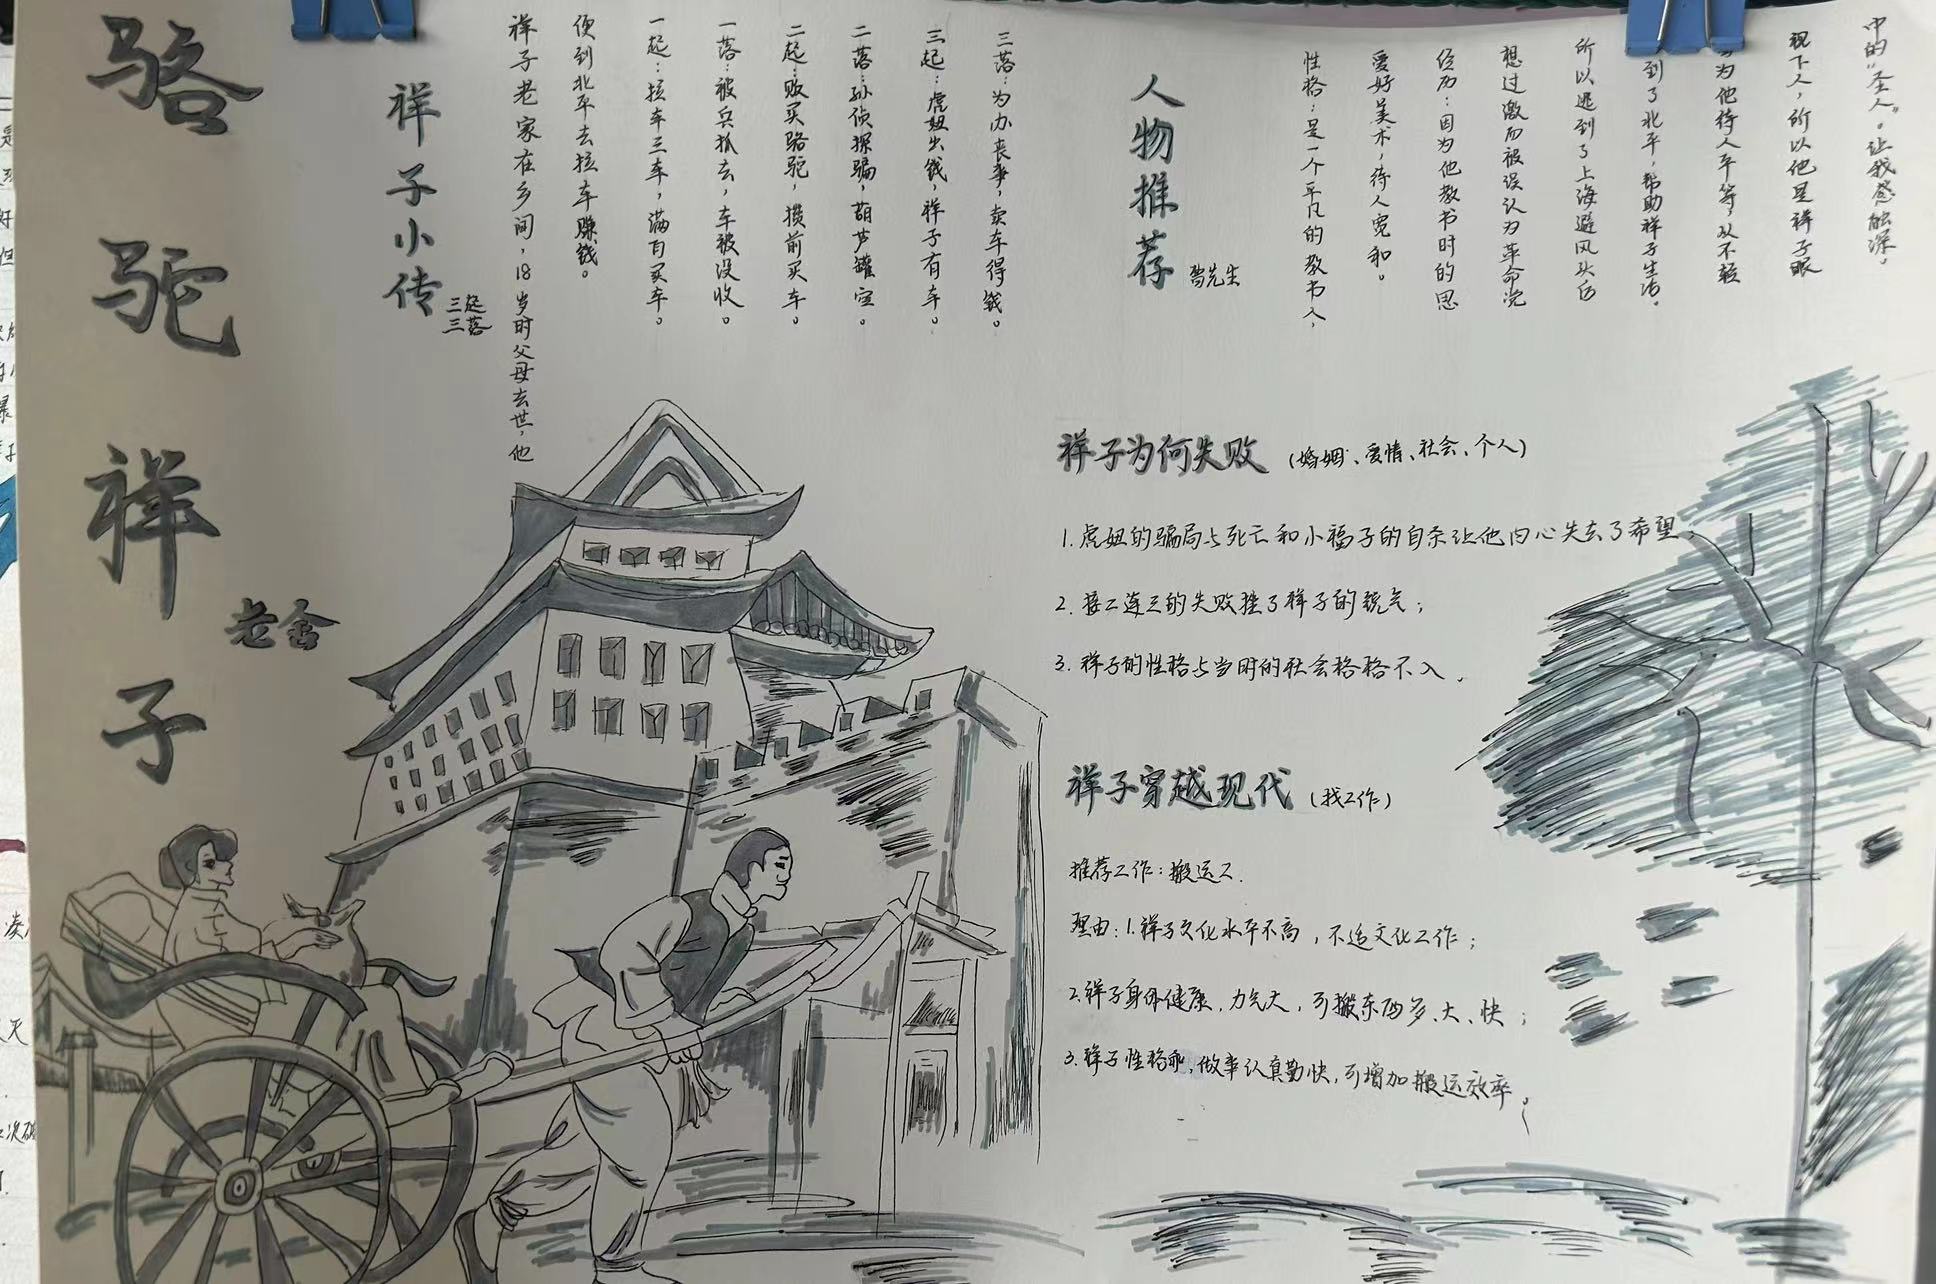 骆驼祥子
老舍
祥子小传
三起
三落
祥子老家在乡间，18岁时父母去世，他
便到北平去拉车赚钱。
一起：拉车三车，满百买车。
一落：被兵抓去，车被没收。
二起：败买骆驼，攒前买车。
二落：孙侦探骗，葫芦罐空。
三起：虎妞出钱，祥子有车。
三落：为办丧事，卖车得钱。
人物推荐
曹先生
性格：是一个平凡的教书人，
爱好美术，待人宽和。
经历：因为他教书时的思
想过激而被误认为革命党
所以逃到了上海避风头后
到了北平，帮助祥子生活。
为他待人平等，从不轻
视下人，所以他是祥子眼
中的“圣人”。让我感触深。
祥子为何失败（婚姻、爱情、社会、个人）
1.虎妞的骗局与死亡和小福子的自杀让他内心失去了希望；
2.接二连三的失败挫了祥子的锐气；
3.祥子的性格与当时的社会格格不入。
祥子穿越现代（找工作）
推荐工作：搬运工.
理由：1.祥子文化水平不高，不适文化工作；
2.祥子身体健康，力气大，可搬东西多、大、快；
3.祥子性格乖，做事认真勤快，可增加搬运效率。